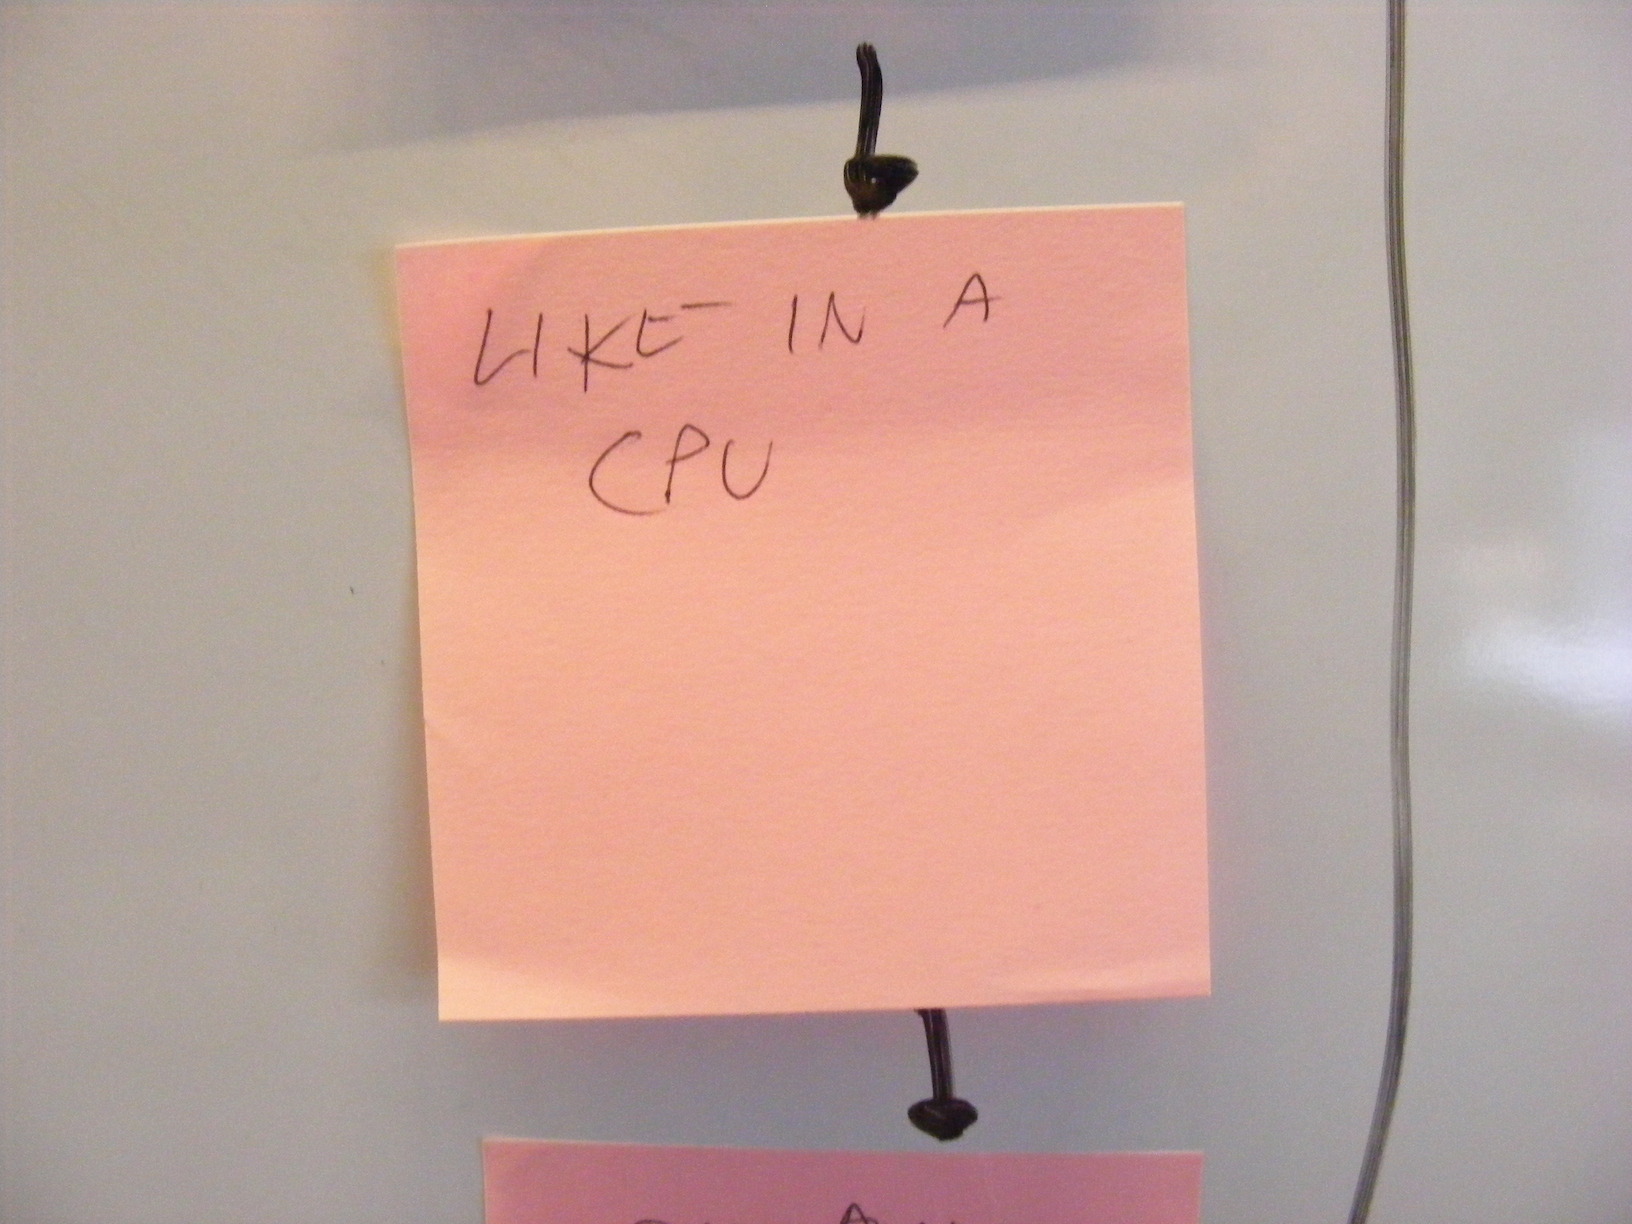 LIKE IN A
CPU